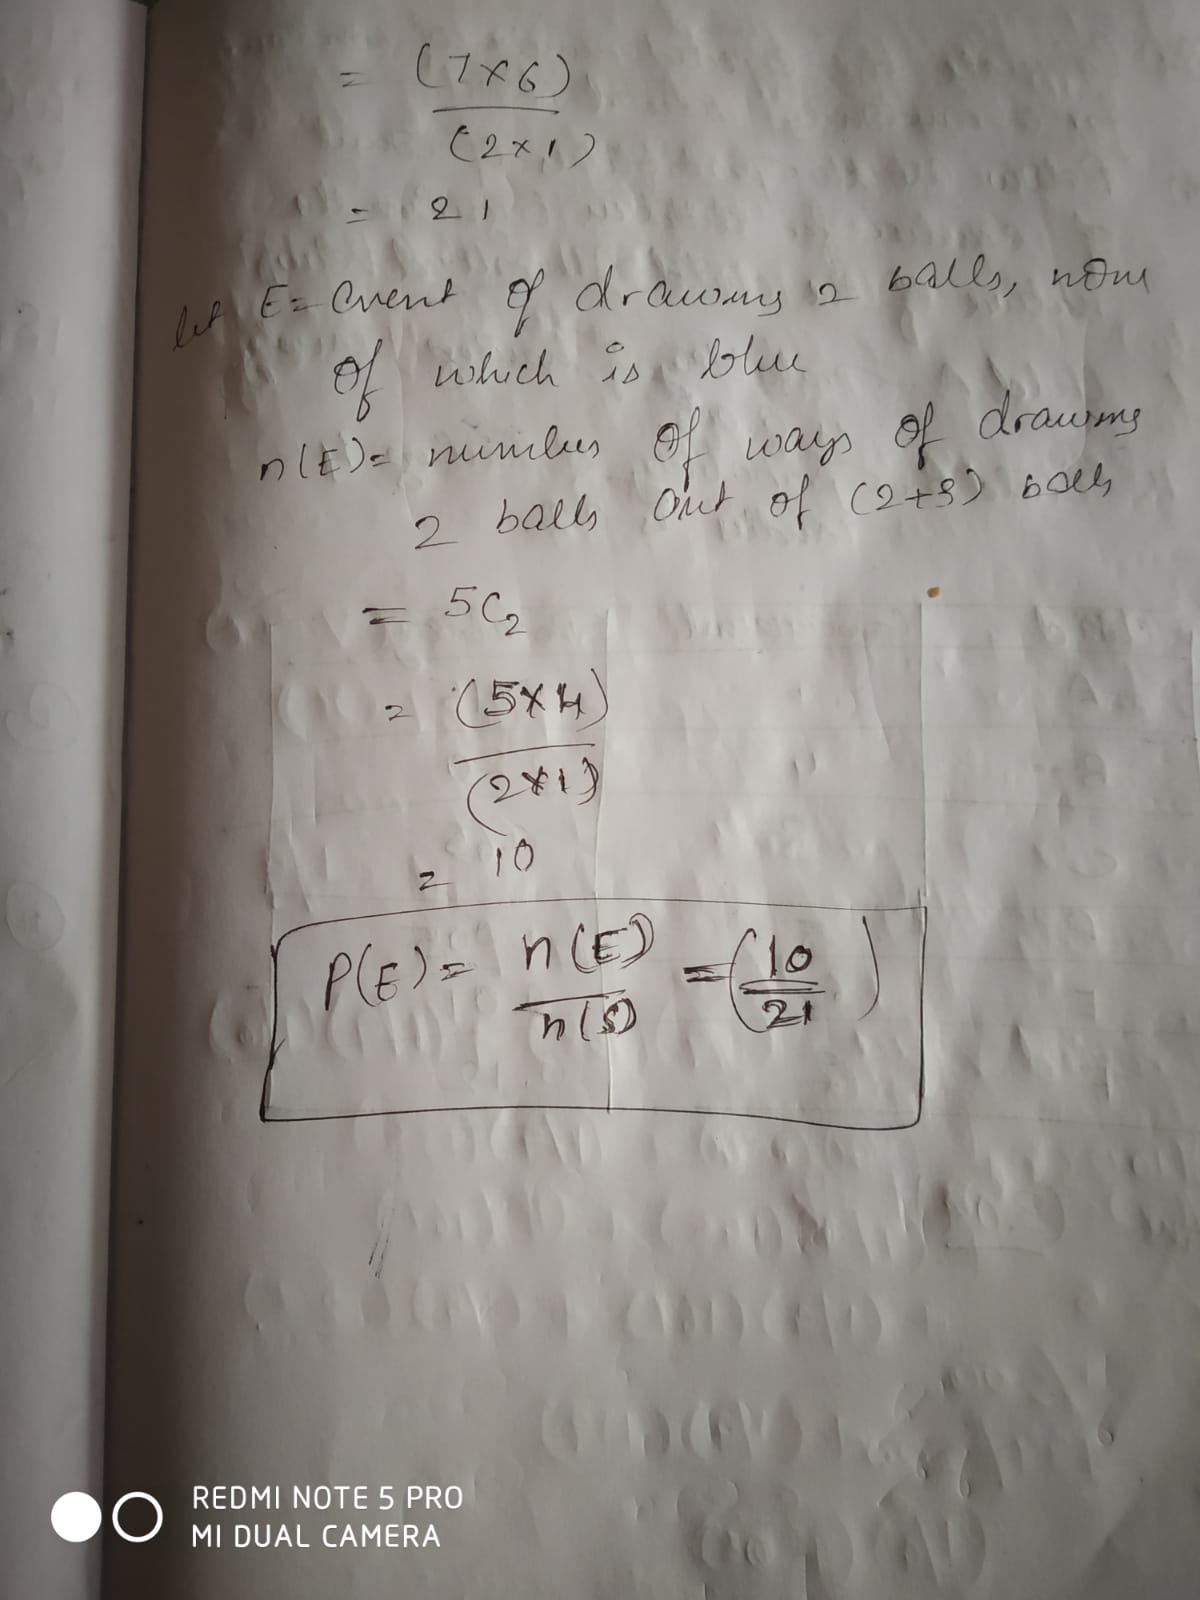 = (7×6)
(2×1)
= 21
let E= Event of drawing 2 balls, none
of which is blue
n(E)= number of ways of drawing
2 balls out of (2+3) balls
= 5C2
= (5×4)
(2×1)
= 10
P(E)= n(E) = (10)
n(S) 21
REDMI NOTE 5 PRO
MI DUAL CAMERA